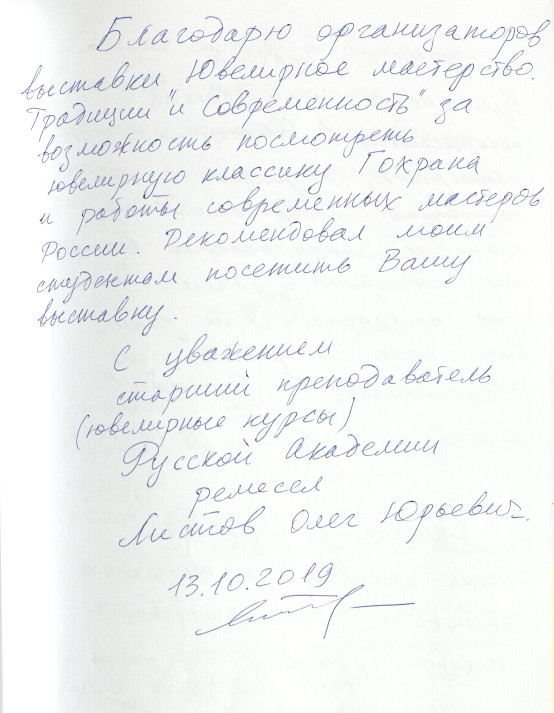 Благодарю организаторов
выставки Ювелирное мастерство.
Традиции "и Современность" за
возможность посмотреть
ювелирную классику Гохрана
и работы современных мастеров
России. Рекомендовал моим
студентам посетить Вашу
выставку.
С уважением
старший преподаватель
(ювелирные курсы)
Русской Академии
ремесел
Листов Олег Юрьевич.
13.10.2019